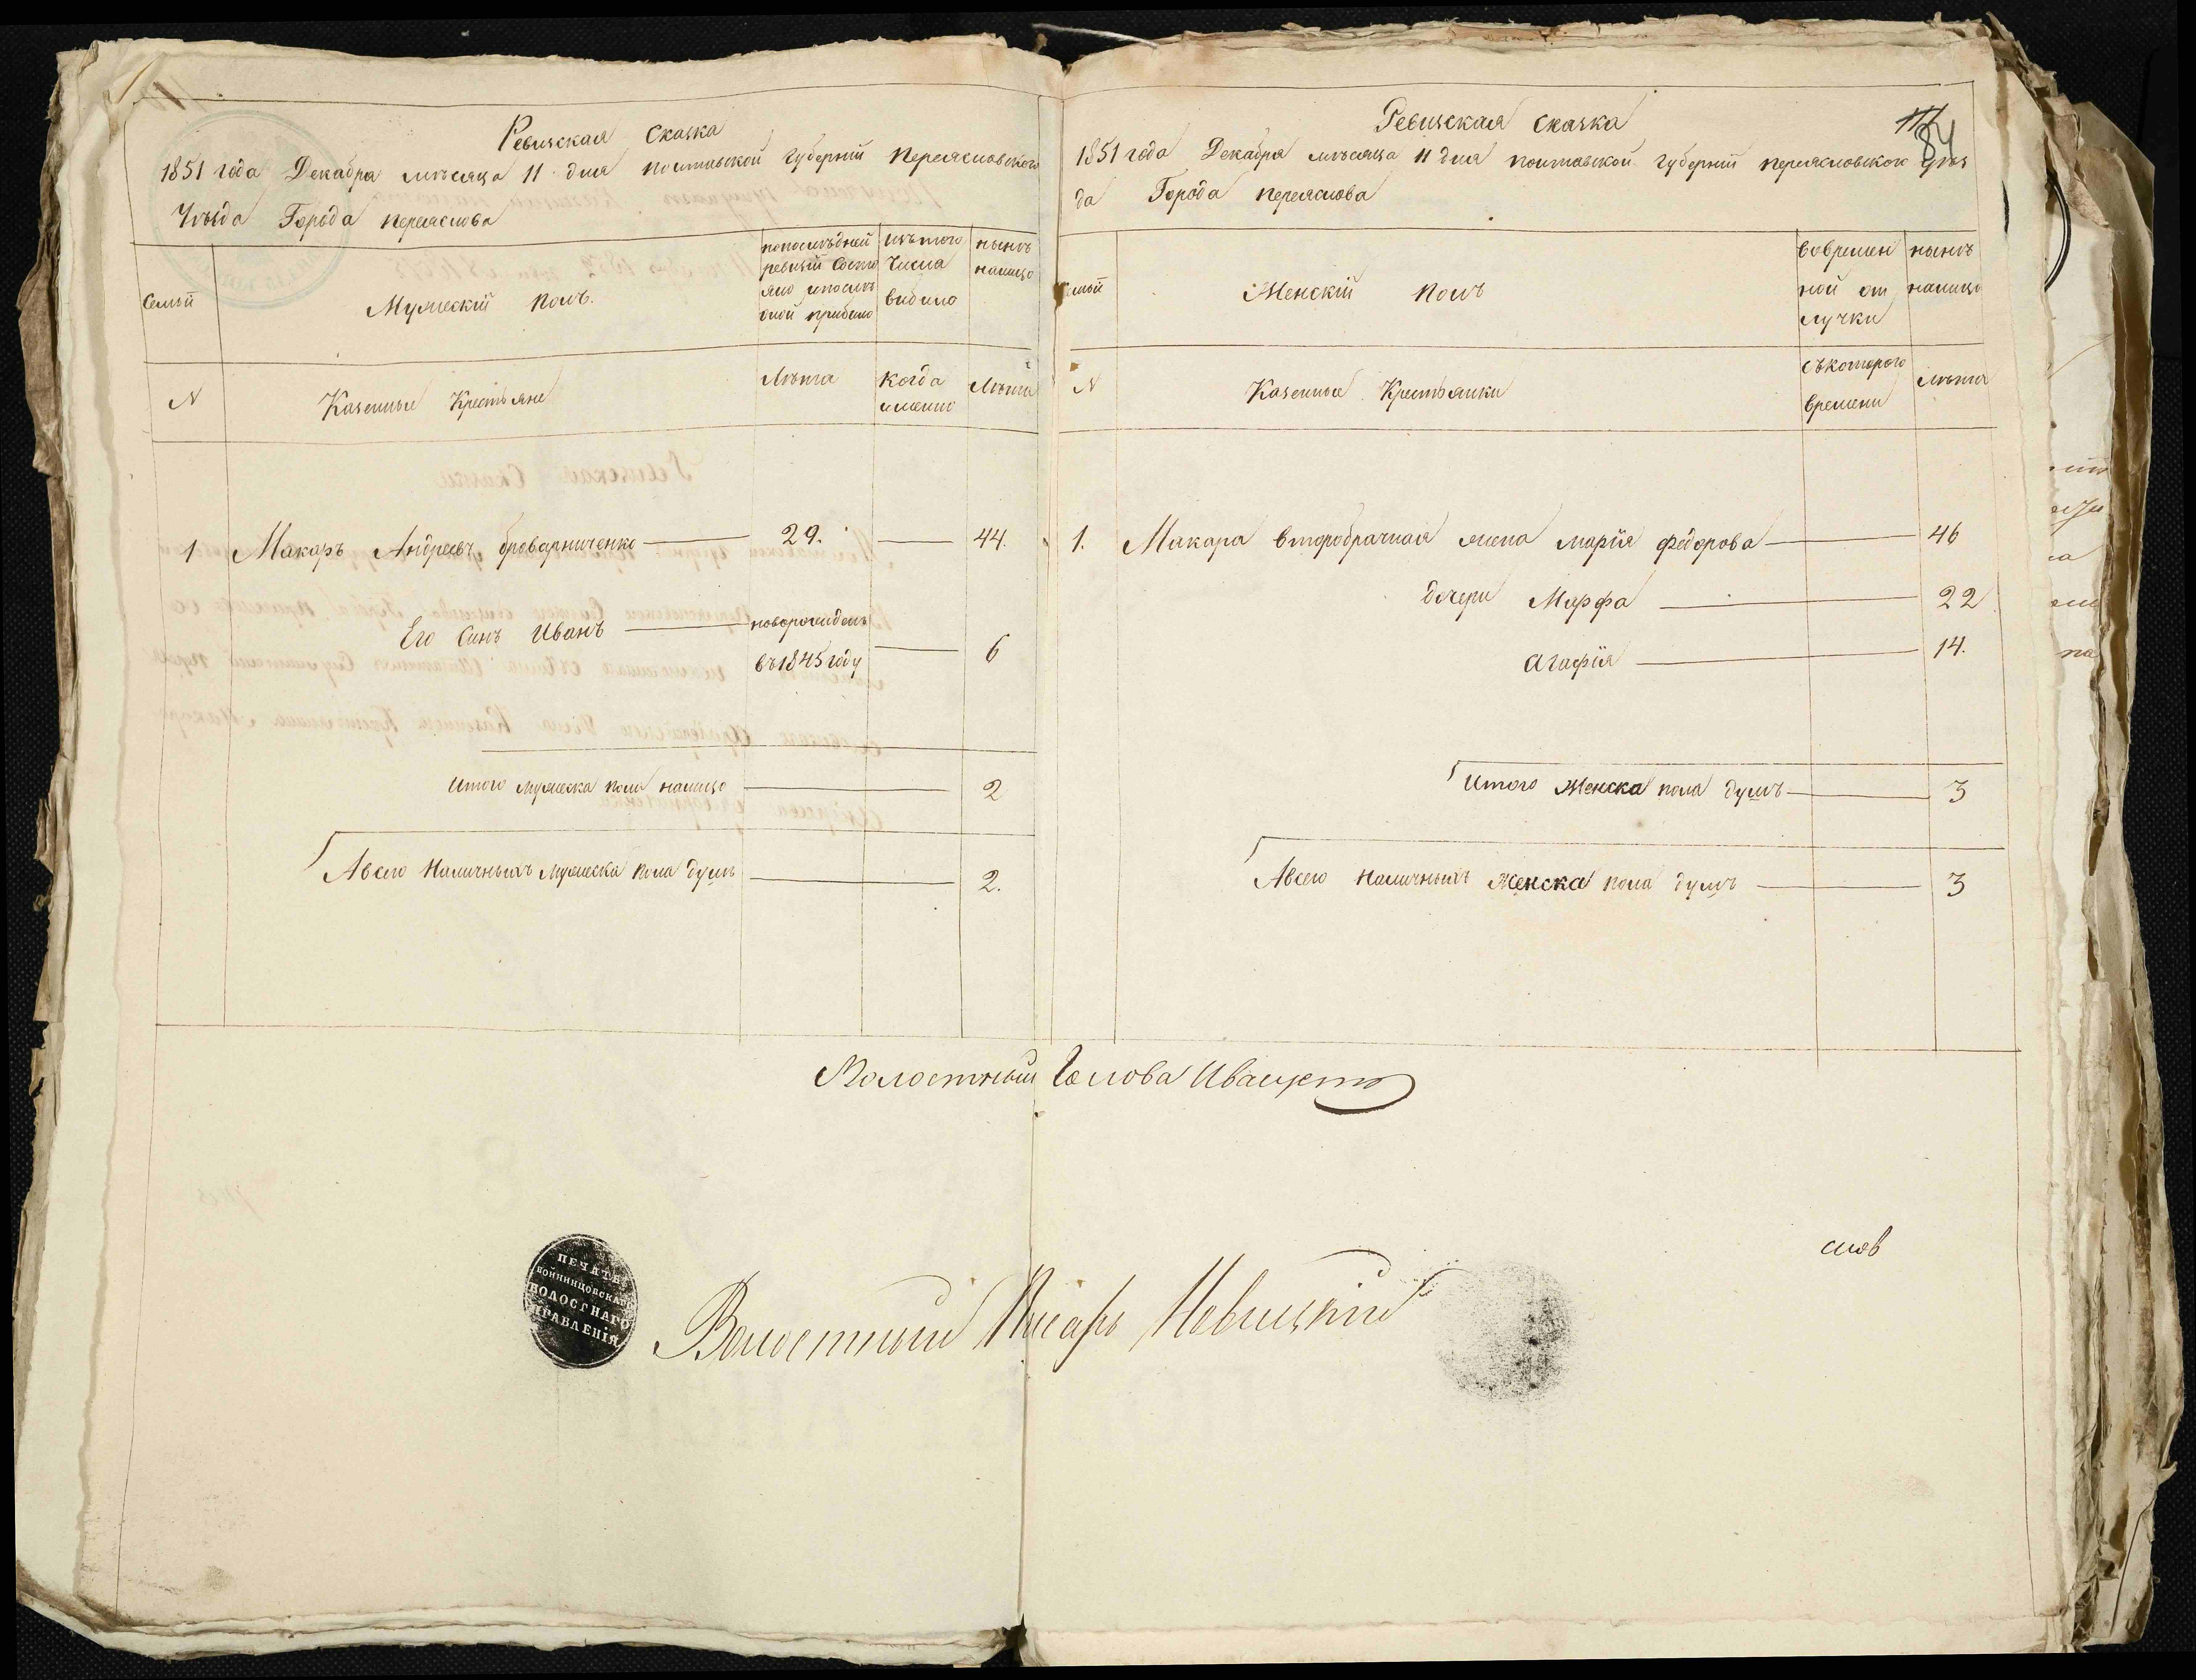 Ревизская Сказка
1851 года Декабря месяца 11 дня полтавской губернїи переясловского
Уѣзда Города переяслова
Семьи
Мужескій полъ.
попослѣдней
ревизїи состо
яло ипослѣ
оной прибыло
изътого
числа
выбыло
нынѣ
налицо
N
Казенные Крестьяне
Лѣта
когда
именно
Лѣта
1 Макаръ Андреевъ броварниченко 29. 44.
Его Синъ Иванъ новорожденъ
въ1845 году 6
Итого мужеска пола налицо 2
Авсего Наличныхъ мужеска пола душъ 2.
84
Ревизская сказка
1851 года Декабря мѣсяца 11 дня полтавской губернїи переясловского уѣз
да Города переяслова
Семьи
Женскій полъ
Вовремен
ной от
лучки
нынѣ
налицо
N
Казенные Крестьянки
съкоторого
времени
лѣта
1. Макара второбрачная жена марїя федорова 46
дочери Марфа 22
агафїя 14.
Итого Женска пола душъ 3
Авсего наличныхъ женска пола душъ 3
Волостный Голова
слов
ПЕЧАТЬ
ВОЙНИНЦОВСКА
ВОЛОСТНАГО
ПРАВЛЕНІЯ
Волостный Писарь Новицкій